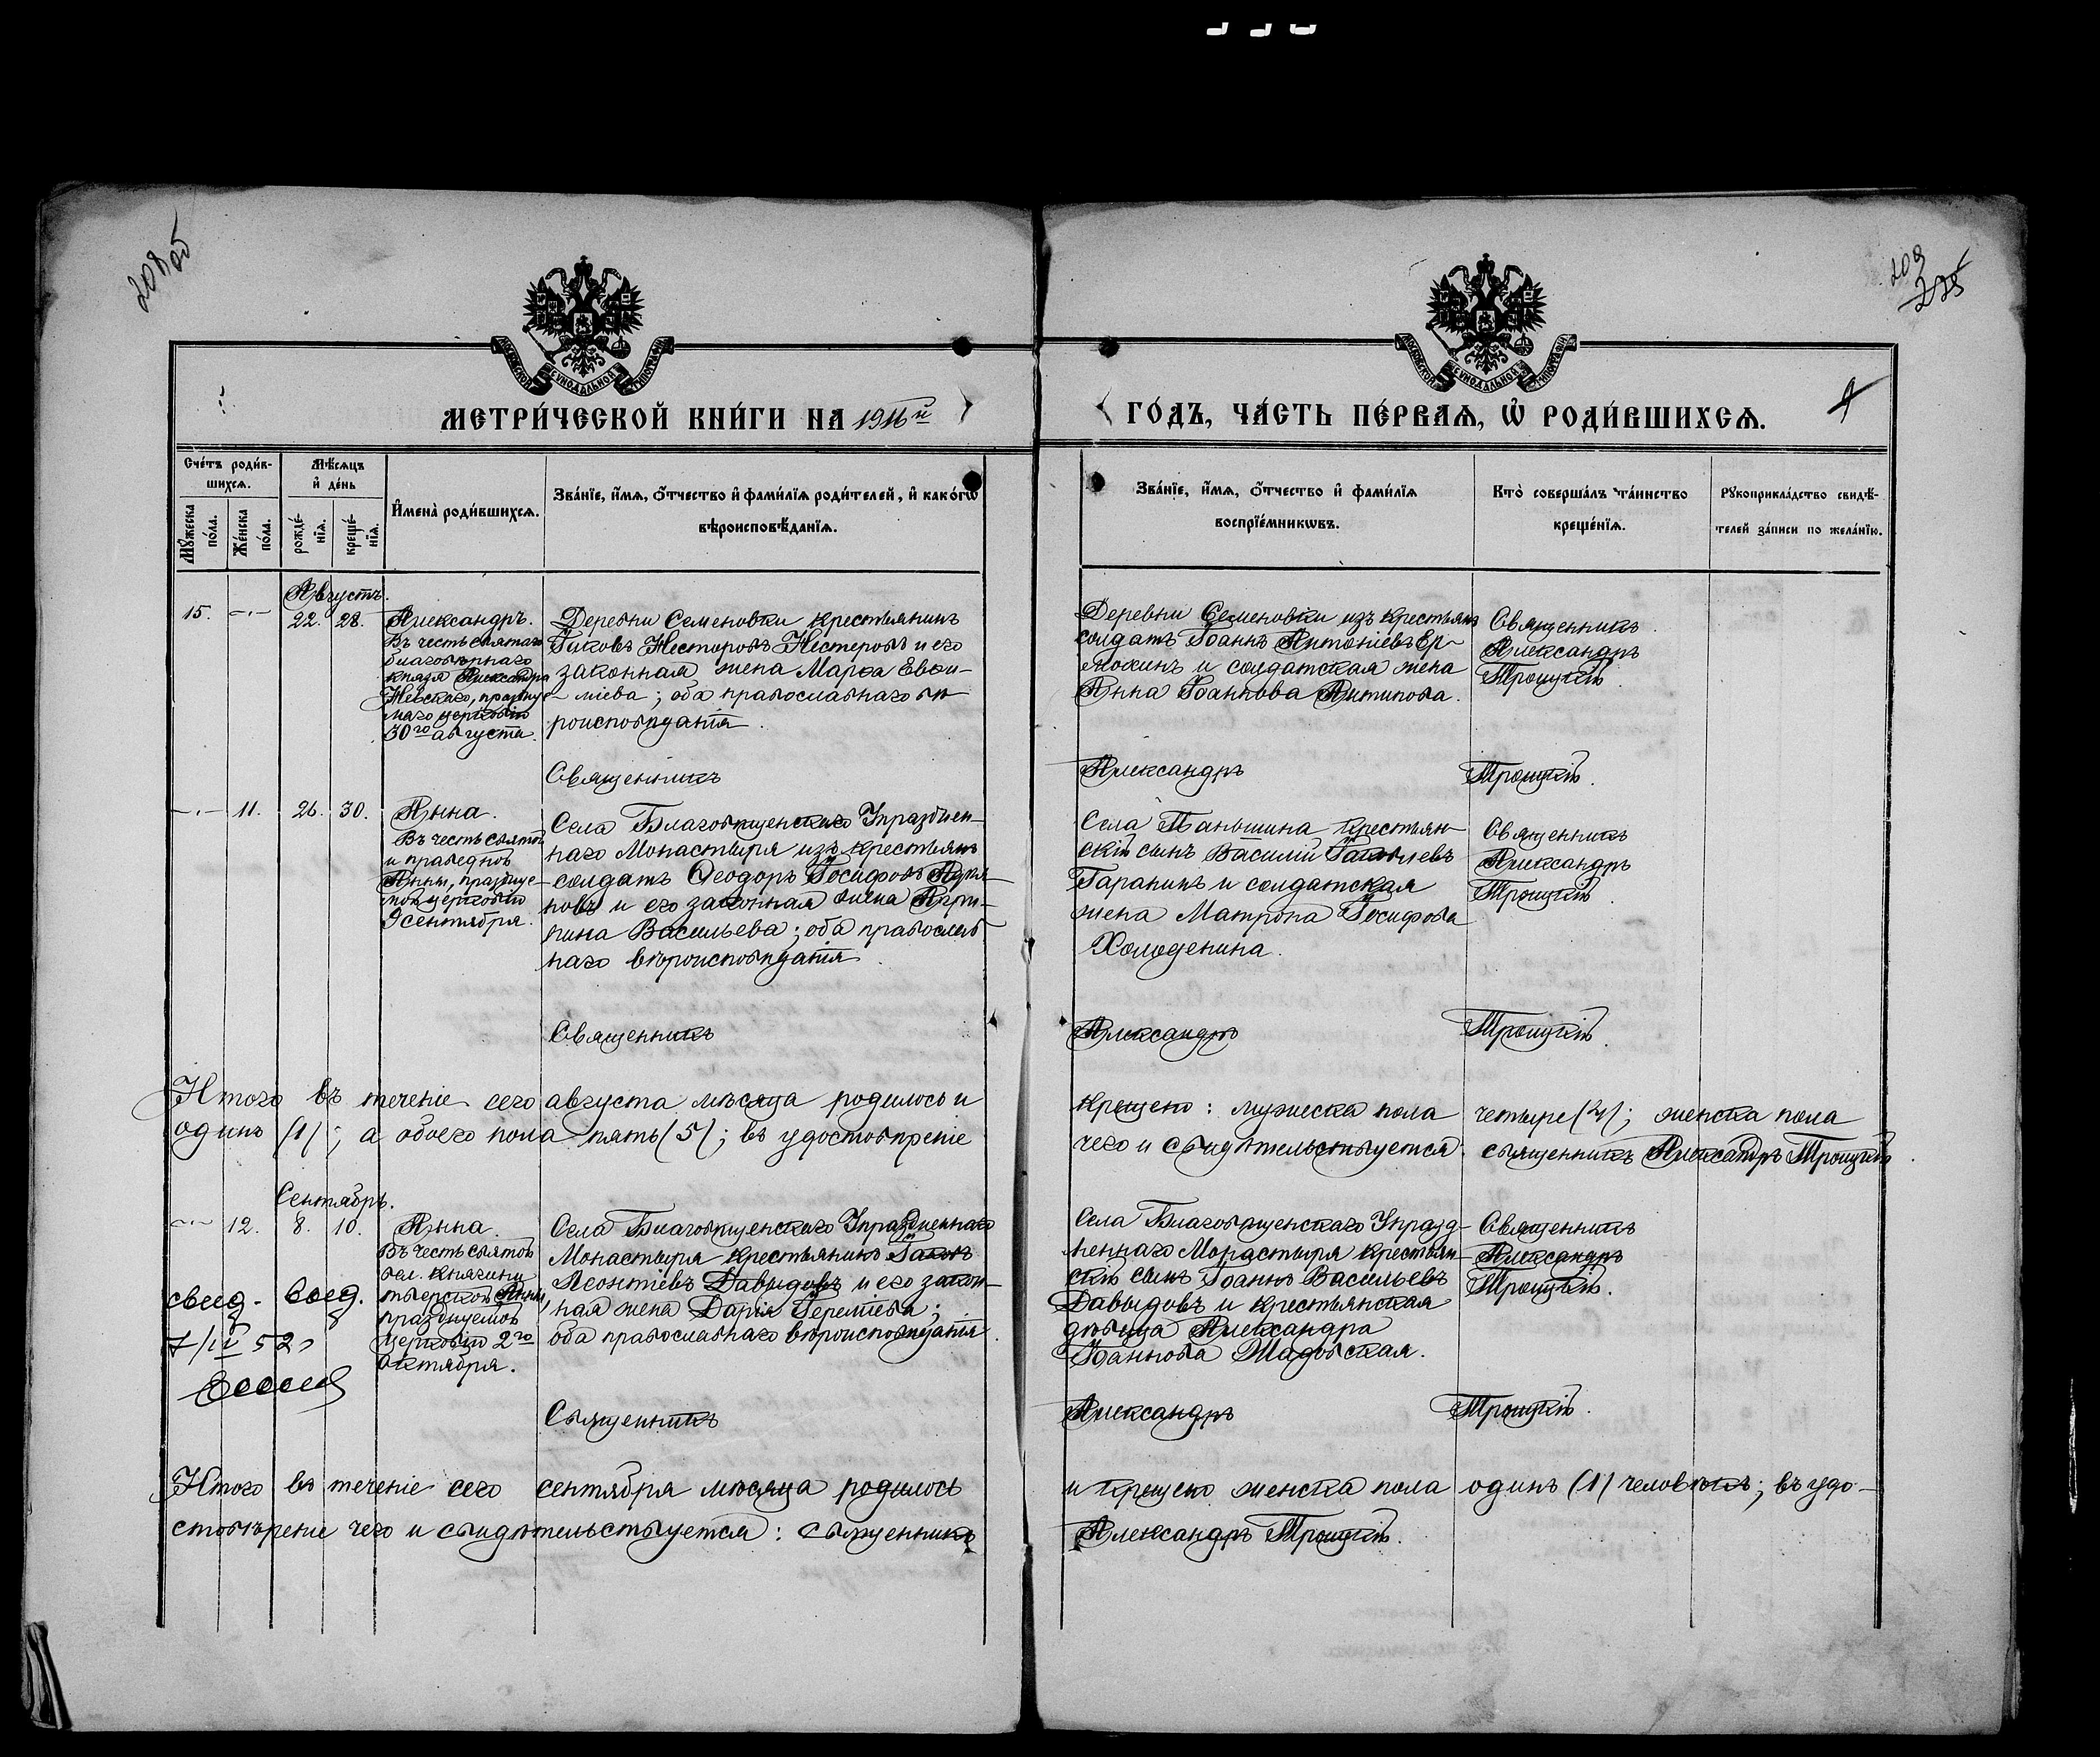 208 об
209
МОСКОВСКОЙ СѴНОДАЛЬНОЙ ТИПОГРАФІИ
МОСКОВСКОЙ СѴНОДАЛЬНОЙ ТИПОГРАФІИ
МЕТРИ́ЧЕСКОЙ КНИ́ГИ НА 1916й
ГО́ДЪ, ЧА́СТЬ ПЕ́РВАѦ, Ѡ҆ РОДИ́ВШИХСѦ.
9
Сче́тъ роди́в-
шихсѧ.
Мꙋ́жеска по́ла.
Же́нска по́ла.
Мѣ́сѧцъ
и҆ де́нь
рожде́-
нїѧ.
креще́-
нїѧ.
И҆мена̀ роди́вшихсѧ.
Зва́нїе, и҆́мѧ, ѻ҆́тчество и҆ фами́лїѧ роди́телей, и҆ како́гѡ
вѣроисповѣ́данїѧ.
Зва́нїе, и҆́мѧ, ѻ҆́тчество и҆ фами́лїѧ
воспрїе́мникѡвъ.
Кто̀ соверша́лъ та́инство
креще́нїѧ.
Рꙋкоприкла́дство свидѣ́-
телей за́писи по жела́нїю.
Августъ.
15. -·- 22. 28.
Александръ.
Въ честь святаго
благовѣрнаго
князя Александра
Невскаго, празднуе-
маго церковію
30го августа.
Деревни Семеновки крестьянинъ
Іаковъ Несторовъ Нестеровъ и его
законная жена Марѳа Евѳи-
міева; оба православнаго вѣ-
роисповѣданія.
Деревни Семеновки изъ крестьянъ
солдатъ Іоаннъ Антоніевъ Ер-
мокинъ и солдатская жена
Анна Іоаннова Антипова.
Священникъ
Александръ
Троицкій.
Священникъ Александръ Троицкій.
-·- 11. 26. 30.
Анна.
Въ честь святой
и праведной
Анны, праздуе-
мой церковію
9 сентября.
Села Благовѣщенскаго Упразднен-
наго Монастыря изъ крестьянъ
солдатъ Ѳеодоръ Іосифовъ Адрія-
новъ и его законная жена Агрип-
пина Васильева; оба православ-
наго вѣроисповѣданія.
Села Паньшина крестьян-
скій сынъ Василій Іаковлевъ
Гаранинъ и солдатская
жена Матрона Іосифова
Холоденина.
Священникъ
Александръ
Троицкій.
Священникъ Александръ Троицкій.
Итого въ теченіе сего августа мѣсяца родилось и крещено: мужеска пола четыре (4); женска пола
одинъ (1); а обоего пола пять (5); въ удостовѣреніе чего и свидѣтельствуется: священникъ Александръ Троицкій.
Сентябрь.
-·- 12. 8. 10.
Анна.
Въ честь святой
вел. княгини
тверской Анны,
празднуемой
церковію 2го
октября.
Села Благовѣщенскаго Упраздненнаго
Монастыря крестьянинъ Іаковъ
Леонтіевъ Давыдовъ и его закон-
ная жена Дарія Іереміева;
оба православнаго вѣроисповѣданія.
Села Благовѣщенскаго Упразд-
неннаго Монастыря крестьян-
скій сынъ Іоаннъ Васильевъ
Давыдовъ и крестьянская
дѣвица Александра
Іоаннова Шадовская.
Священникъ
Александръ
Троицкій.
7/IV 52
Священникъ Александръ Троицкій.
Итого въ теченіе сего сентября мѣсяца родилось и крещено женска пола одинъ (1) человѣкъ; въ удо-
стовѣреніе чего и свидѣтельствуется: священникъ Александръ Троицкій.